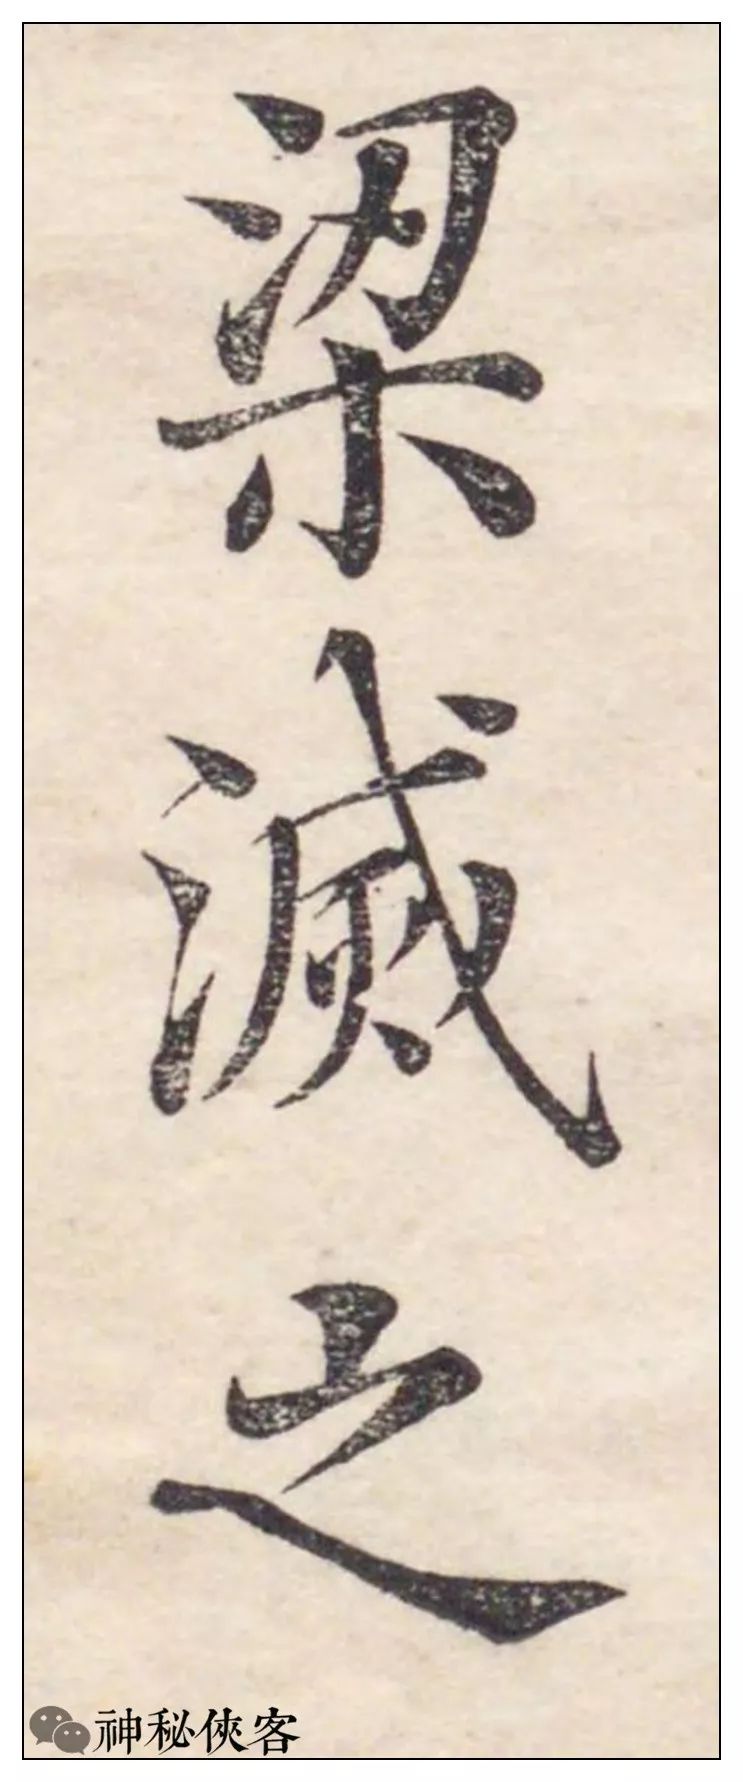 梁滅之
神秘俠客